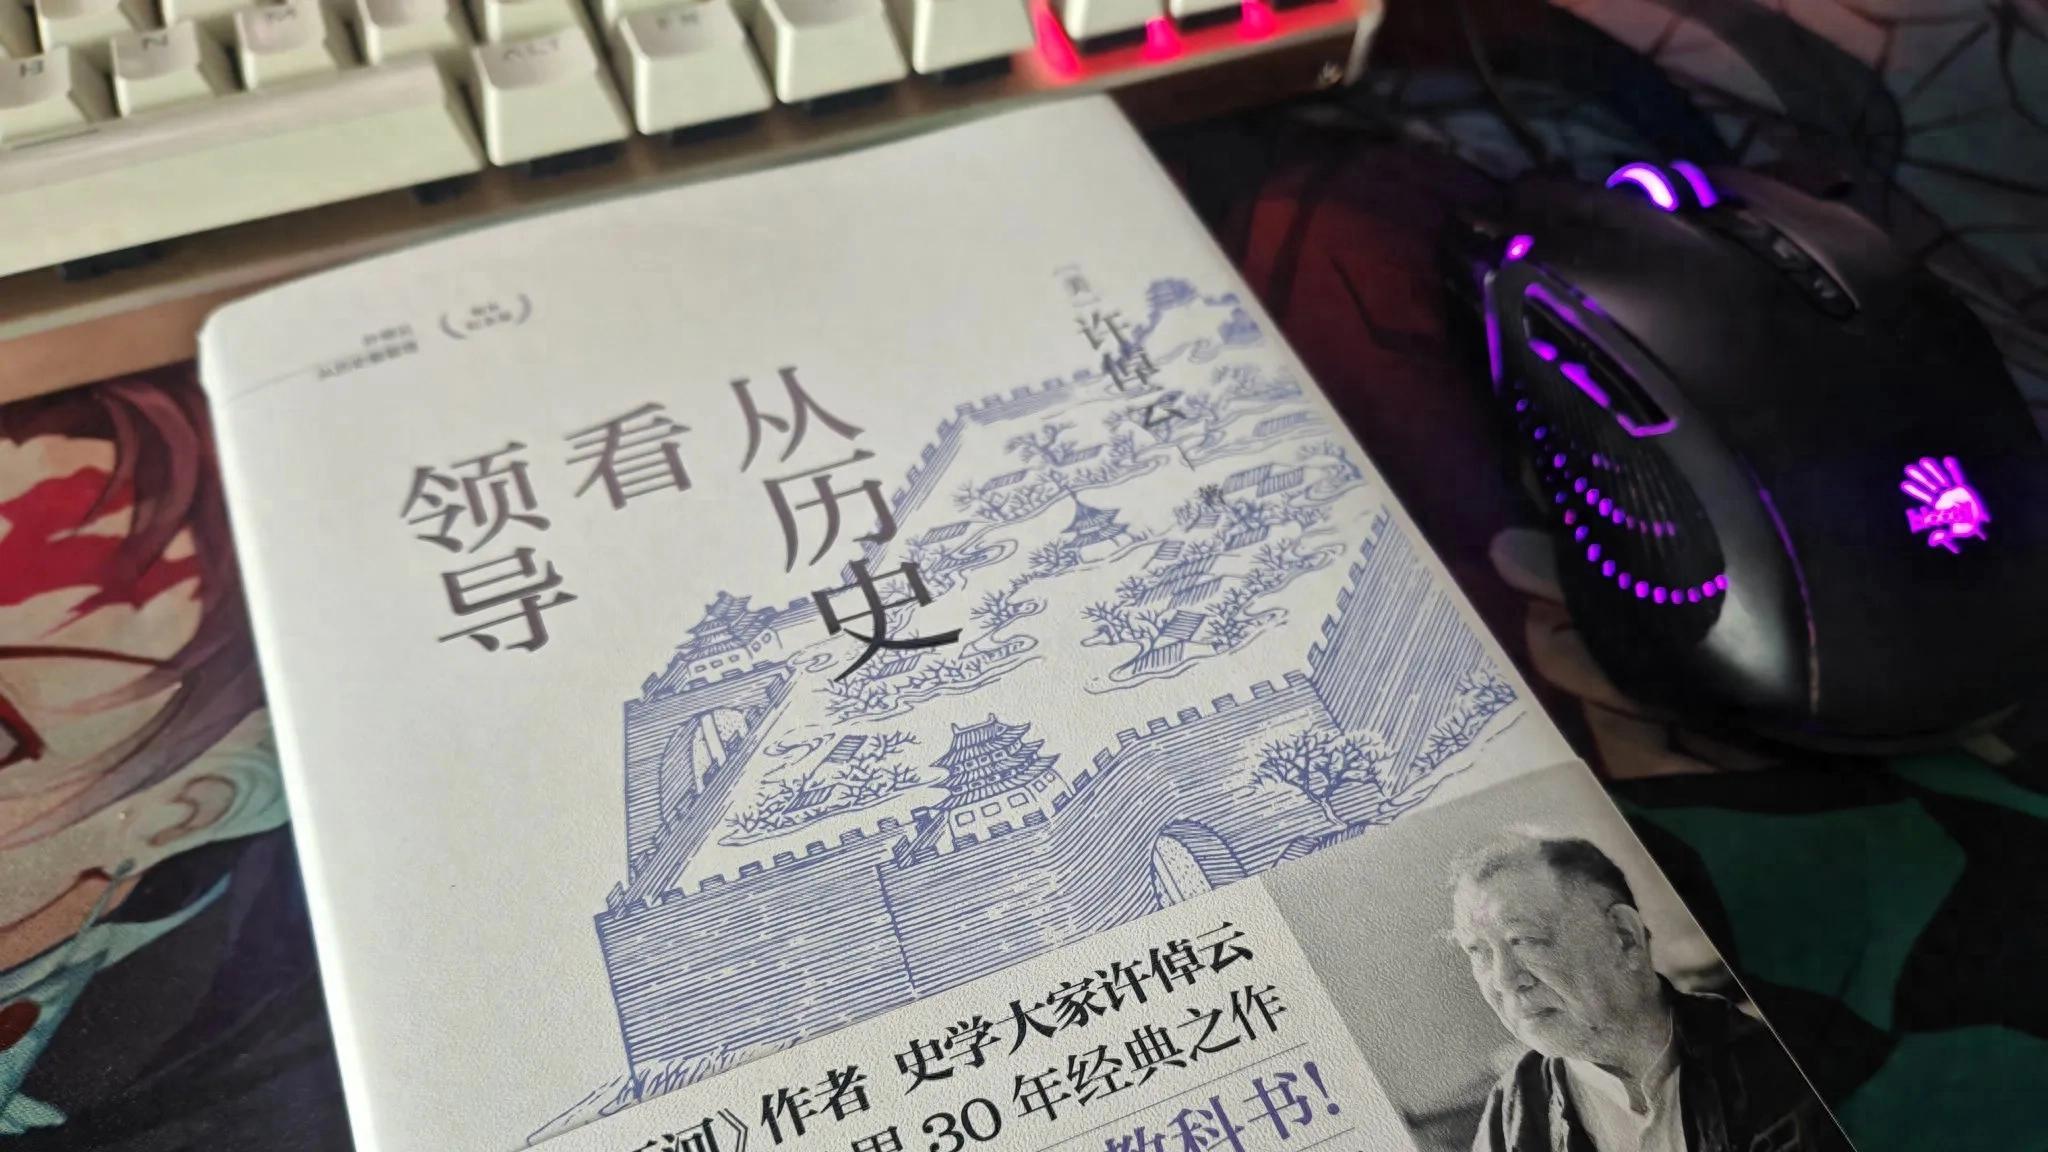 N
M
ALT
FN
从历史
看
领导
[美]
许倬云
著
河》作者 史学大家许倬云
30年经典之作
教科书!